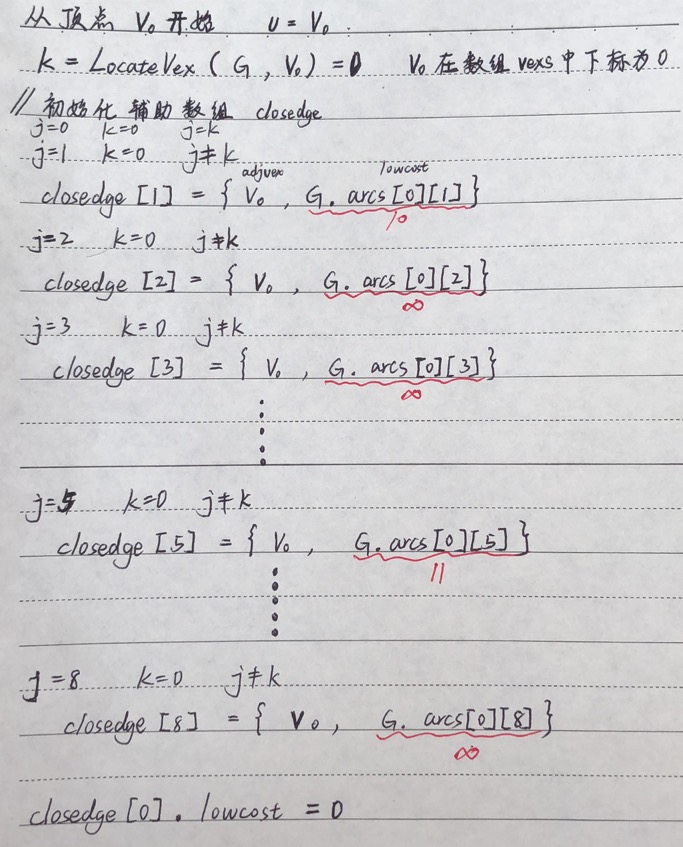 从顶点 V₀ 开始 u = V₀.
k = LocateVex ( G , V₀ ) = 0 V₀ 在数组 vexs 中下标为 0
// 初始化 辅助数组 closedge
j=0 k=0 j=k
j=1 k=0 j≠k
adjvex lowcost
closedge [1] = { V₀ , G. arcs [0][1] }
10
j=2 k=0 j≠k
closedge [2] = { V₀ , G. arcs [0][2] }
∞
j=3 k=0 j≠k
closedge [3] = { V₀ , G. arcs [0][3] }
∞
j=5 k=0 j≠k
closedge [5] = { V₀ , G. arcs [0][5] }
11
j=8 k=0 j≠k
closedge [8] = { V₀ , G. arcs[0][8] }
∞
closedge [0] . lowcost = 0